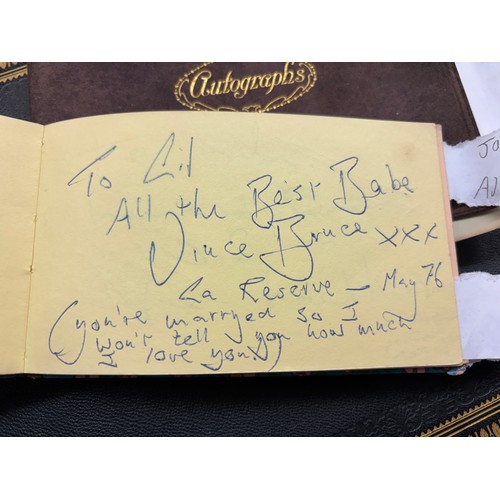 Autographs
To Lil
All the Best Babe
Vince Bruce xxx
La Reserve - May 76
(you're marryed so I
won't tell you how much
I love you)